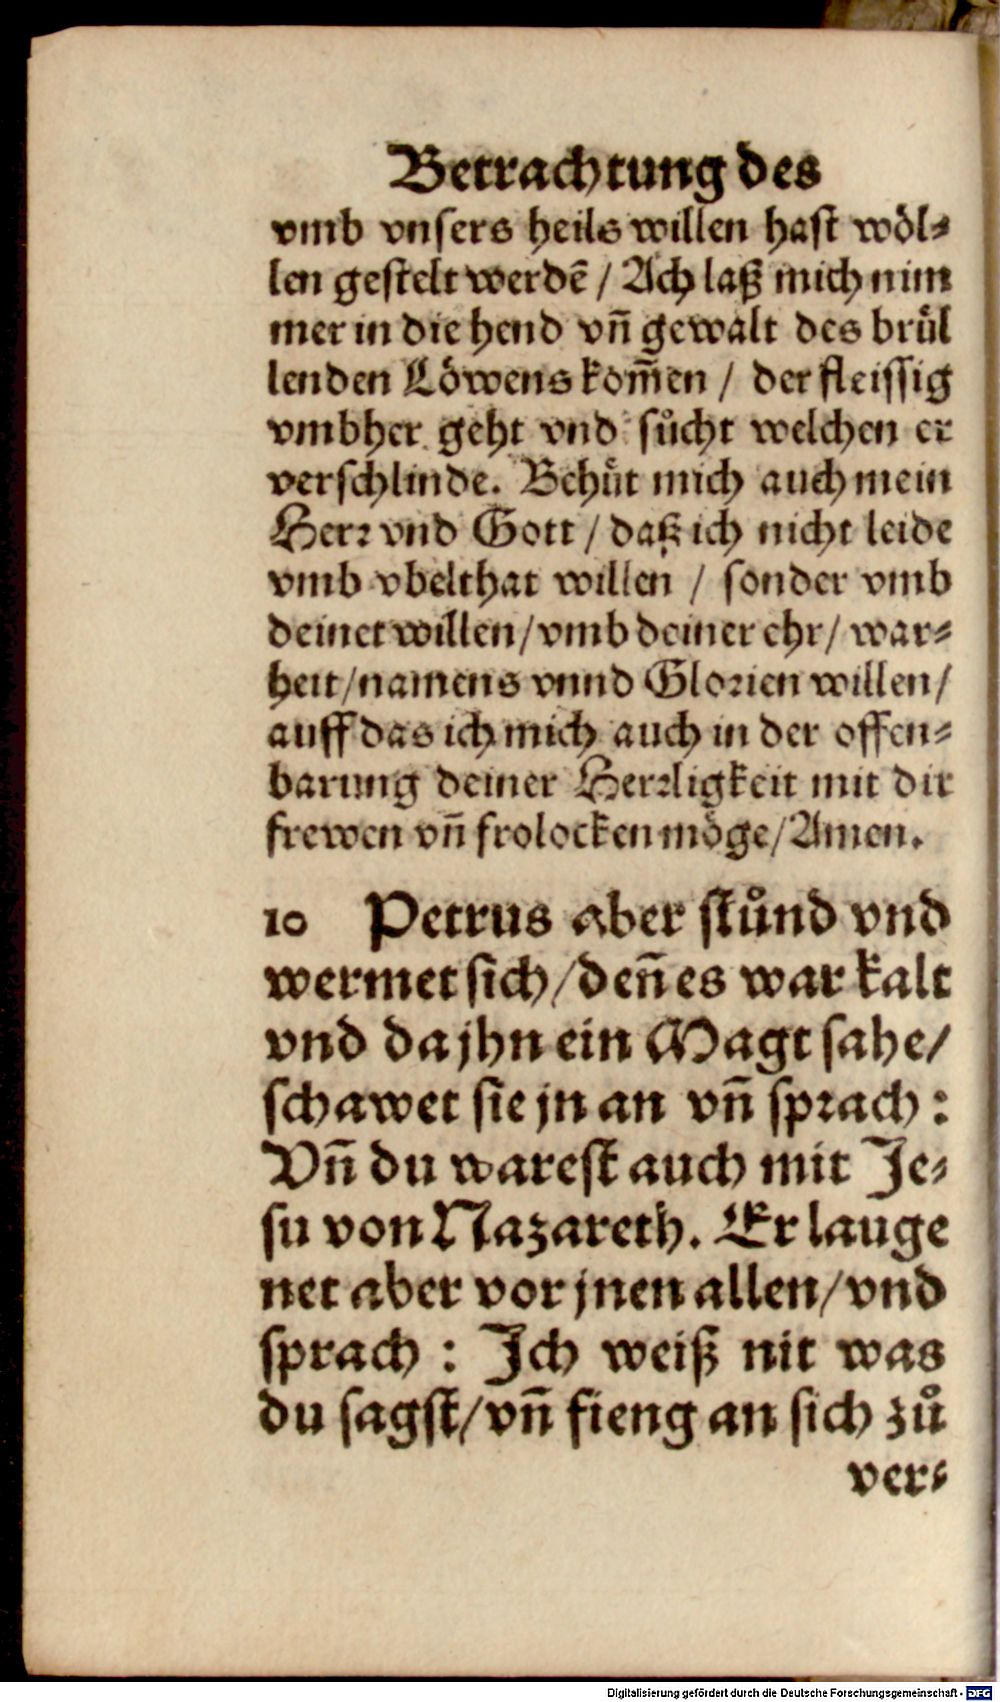 Betrachtung des
vmb vnsers heils willen hast wöl-
len gestelt werdē / Ach laß mich nim
mer in die hend vñ gewalt des bruͤl
lenden Löwens kom̃en / der fleissig
vmbher geht vnd suͤcht welchen er
verschlinde. Behuͤt mich auch mein
Herr vnd Gott / daß ich nicht leide
vmb vbelthat willen / sonder vmb
deinet willen/vmb deiner ehr/ war-
heit/namens vnnd Glorien willen/
auff das ich mich auch in der offen-
barung deiner Herrligkeit mit dir
frewen vñ frolocken möge/Amen.
10 Petrus aber stuͦnd vnd
wermet sich/deñ es war kalt
vnd da jhn ein Magt sahe/
schawet sie jn an vñ sprach :
Vñ du warest auch mit Je-
su von Nazareth. Er lauge
net aber vor jnen allen/vnd
sprach : Ich weiß nit was
du sagst/vñ fieng an sich zuͦ
ver-
Digitalisierung gefördert durch die Deutsche Forschungsgemeinschaft - DFG